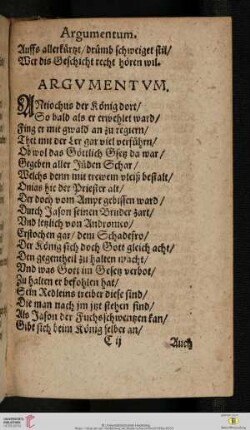 Argumentum.
Auffs allerkürtzt/ drümb schweiget stil/
Wer dis Geschicht recht hören wil.
ARGVMENTVM.
ANtiochus der König dort/
So bald als er erwehlet ward/
Fing er mit gwald an zu regiern/
Thet mit der Ler gar viel verführn/
Ob wol das Göttlich Gsetz da war/
Gegeben aller Jüden Schar/
Welchs denn mit trewem vleiß bestalt/
Onias hie der Priester alt/
Der doch vom Ampt gebissen ward/
Durch Jason seinen Bruder zart/
Vnd letzlich von Andronico/
Erstochen gar/ dem Schadefro/
Der König sich doch Gott gleich acht/
Den gegentheil zu halten macht/
Vnd was Gott im Gesetz verbot/
Zu halten er befohlen hat/
Sein Redleins treiber diese sind/
Die man nach jm itzt stehen sind/
Als Jason der Fuchsschwentzen kan/
Gibt sich beim König selber an/
C ij
Auch